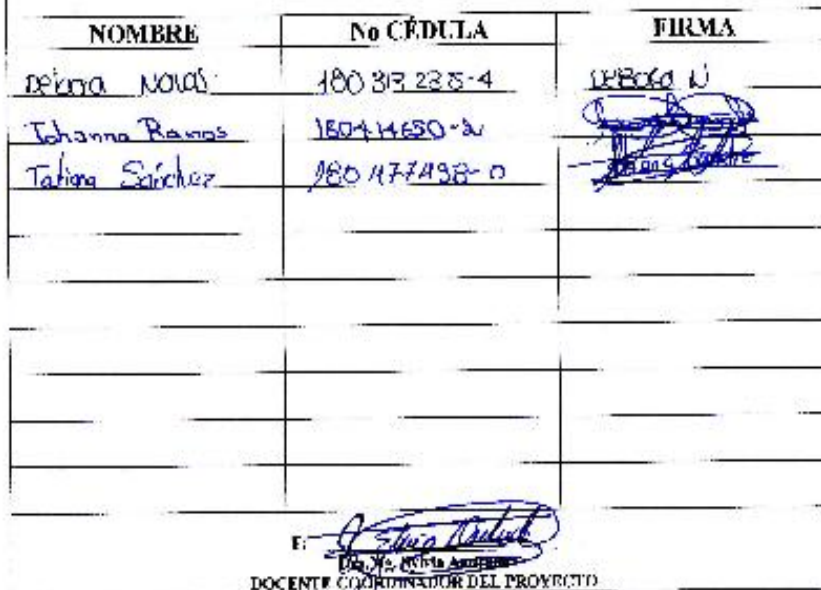 NOMBRE No CÉDULA FIRMA
Debora Navas 180 313 235-4 DEBORA N
Johanna Ramos 180414650-2
Tatiana Sánchez 180477498-0
F:
Dra. Mg. Sylvia
DOCENTE COORDINADOR DEL PROYECTO